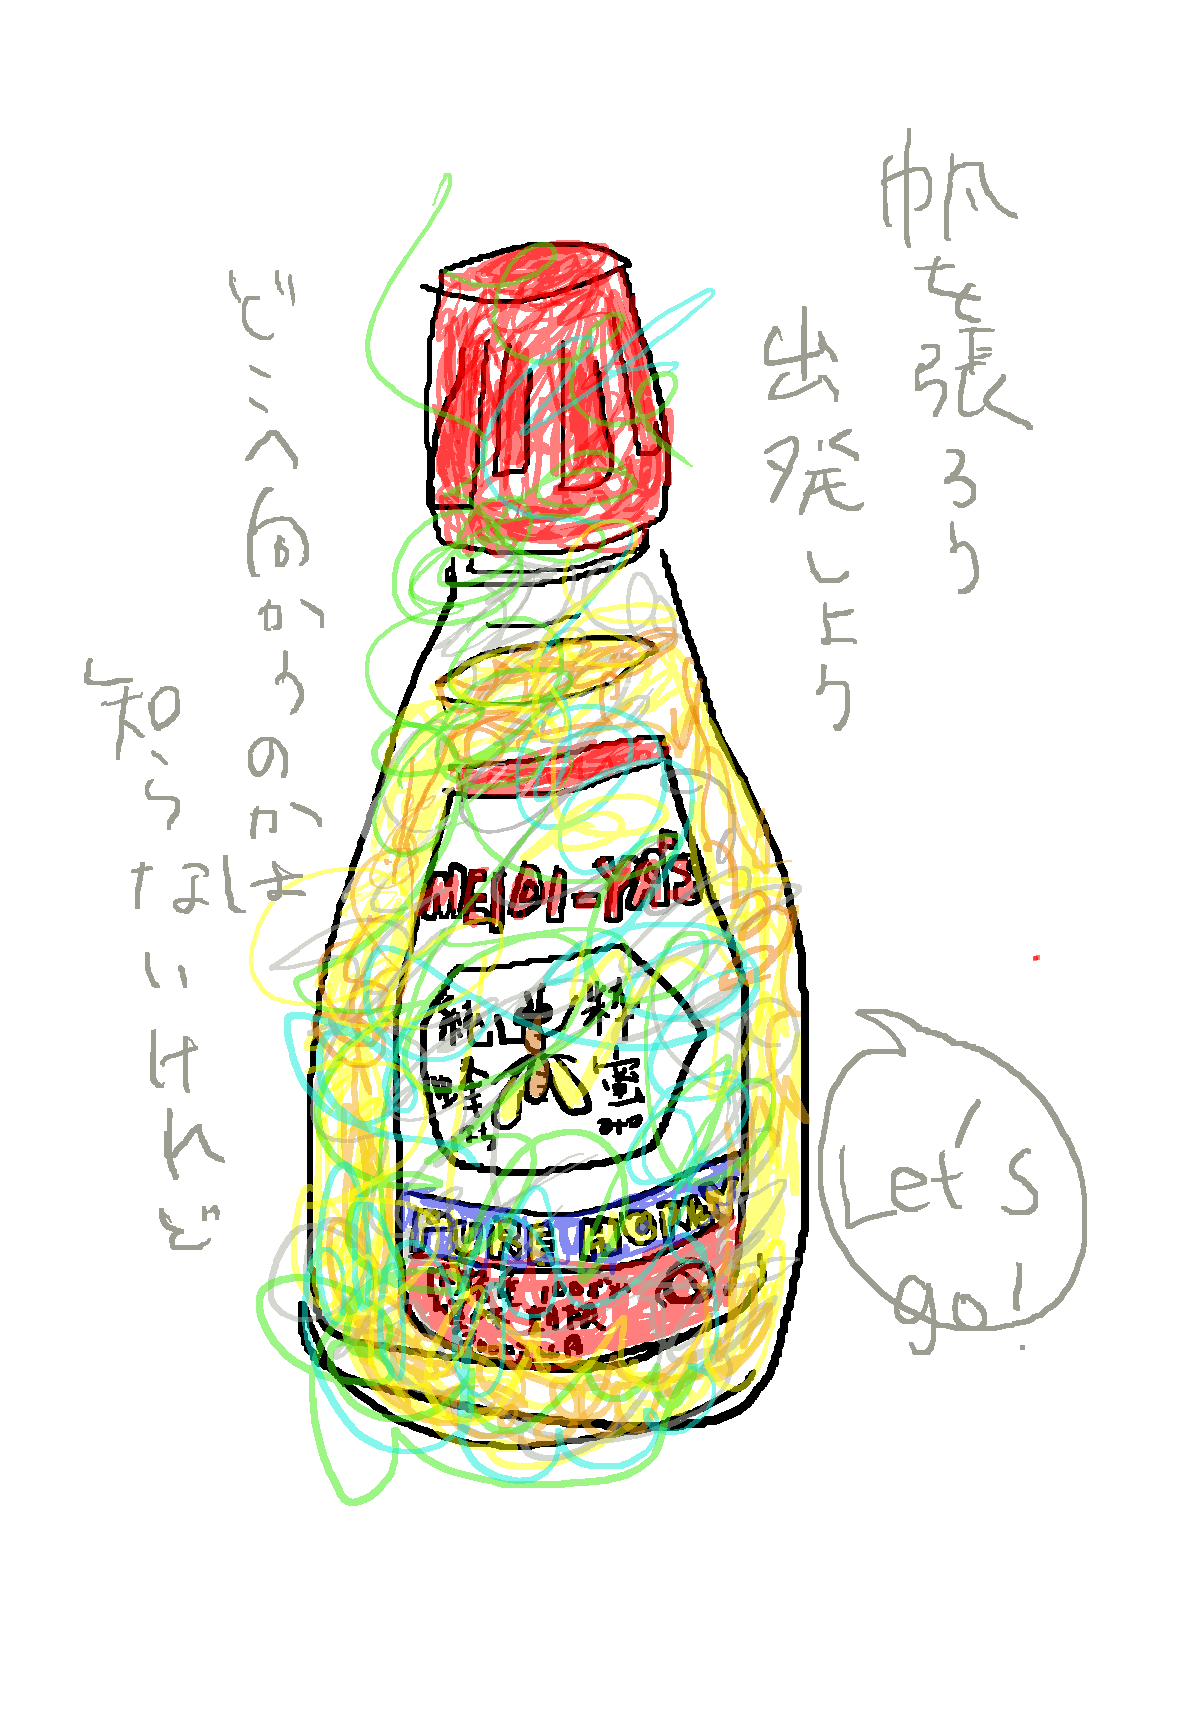 帆を張ろう
出発しよう
どこへ向かうのかは
知らないけれど
MEIDI-YA'S
純粋
蜂蜜
PURE HONEY
Let's
go!